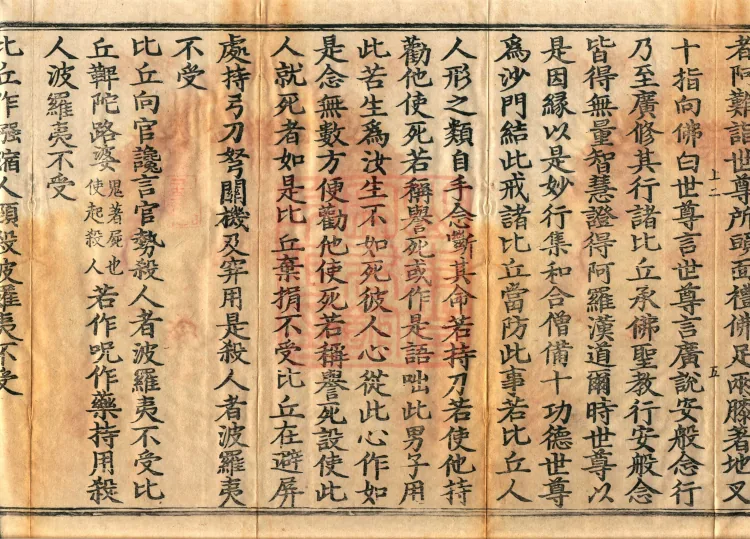 者阿難詣世尊所頭面禮佛足兩膝著地叉
上二 五
十指向佛白世尊言世尊言廣說安般念行
乃至廣修其行諸比丘承佛聖教行安般念
皆得無量智慧證得阿羅漢道爾時世尊以
是因緣以是妙行集和合僧備十功德世尊
爲沙門結此戒諸比丘當防此事若比丘人
人形之類自手念斷其命若持刀若使他持
勸他使死若稱譽死或作是語咄此男子用
此苦生爲汝生不如死彼人心從此心作如
是念無數方便勸他使死若稱譽死設使此
人就死者如是比丘棄捐不受比丘在避屏
處持弓刀弩關機及穽用是殺人者波羅夷
不受
比丘向官讒言官勢殺人者波羅夷不受比
丘鞞陀路婆鬼著屍也使起殺人若作呪作藥持用殺
人波羅夷不受
比丘作強縮人頭殺波羅夷不受